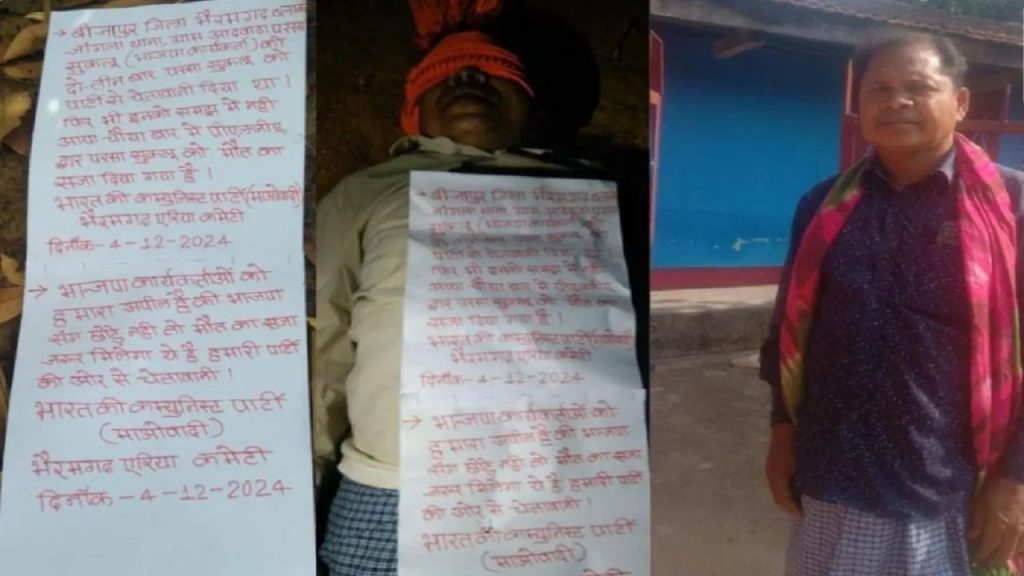 → बीजापुर जिला भैरमगढ ब्लाक
जांगला थाना, ग्राम आदवाडा परसा
सुकलू (भाजपा कार्यकर्ता) को
दो-तीन बार परसा सुकलू को
पार्टी से चेतावनी दिया था।
फिर भी इनको समझ में नही
आया-चौथा बार में पीएलजीए
द्वार परसा सुकलू को मौत का
सजा दिया गया है।
भारत की कम्युनिस्ट पार्टी(माओवादी)
भैरमगढ एरिया कमेटी
दिनाँक-4-12-2024
→ भाजपा कार्यकर्ताओं को
हमारा अपील है की भाजपा
संग छोडे नही तो मौत का सजा
जरूर मिलेगा ये है हमारी पार्टी
की ओर से चेतावनी!
भारत की कम्युनिस्ट पार्टी
(माओवादी)
भैरमगढ एरिया कमेटी
दिनाँक-4-12-2024
→ बीजापुर जिला भैरमगढ ब्लाक
जांगला थाना, ग्राम आदवाडा परसा
सुकलू (भाजपा कार्यकर्ता) को
दो-तीन बार परसा सुकलू को
पार्टी से चेतावनी दिया था।
फिर भी इनको समझ में नही
आया-चौथा बार में पीएलजीए
द्वार परसा सुकलू को मौत का
सजा दिया गया है।
भारत की कम्युनिस्ट पार्टी(माओवादी)
भैरमगढ एरिया कमेटी
दिनाँक-4-12-2024
→ भाजपा कार्यकर्ताओं को
हमारा अपील है की भाजपा
संग छोडे नही तो मौत का सजा
जरूर मिलेगा ये है हमारी पार्टी
की ओर से चेतावनी!
भारत की कम्युनिस्ट पार्टी
(माओवादी)